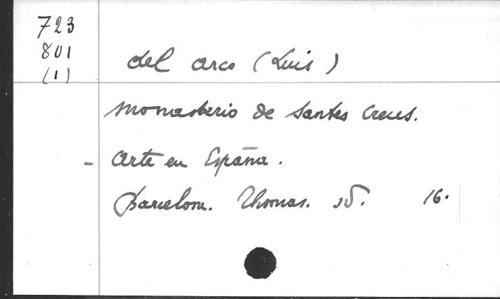 723
801
(1)
del arco (Luis)
Monasterio de Santes Creus.
- Arte en España.
Barcelona. Thomas. s.d. 16.